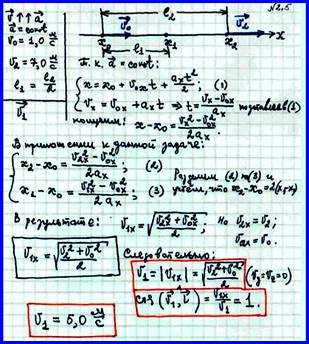 №2.5
v⃗ ↑↑ a⃗
a⃗ = const
v₀ = 1,0 м/с
v₂ = 7,0 м/с
l₁ = l₂/2
v₁
l₂
v⃗₀ v⃗₂
x₀ x₁ x₂ x
l₁
Т.к. a⃗ = const:
x = x₀ + v₀ₓt + aₓt²/2; (1)
vₓ = v₀ₓ + aₓt ⇒ t = (vₓ - v₀ₓ)/aₓ подставляя (1)
получим: x - x₀ = (vₓ² - v₀ₓ²)/2aₓ.
В применении к данной задаче:
x₂ - x₀ = (v₂ₓ² - v₀ₓ²)/2aₓ; (2)
x₁ - x₀ = (v₁ₓ² - v₀ₓ²)/2aₓ; (3)
Разделим (2) на (3) и
учтём, что x₂ - x₀ = 2(x₁ - x₀)
В результате: v₁ₓ = √((v₂ₓ² + v₀ₓ²)/2); но v₂ₓ = v₂;
v₀ₓ = v₀.
v₁ₓ = √((v₂² + v₀²)/2)
Следовательно:
v₁ = |v₁ₓ| = √((v₂² + v₀²)/2) (v_y = v_z = 0)
cos(v⃗₁, i⃗) = v₁ₓ/v₁ = 1.
v₁ = 5,0 м/с